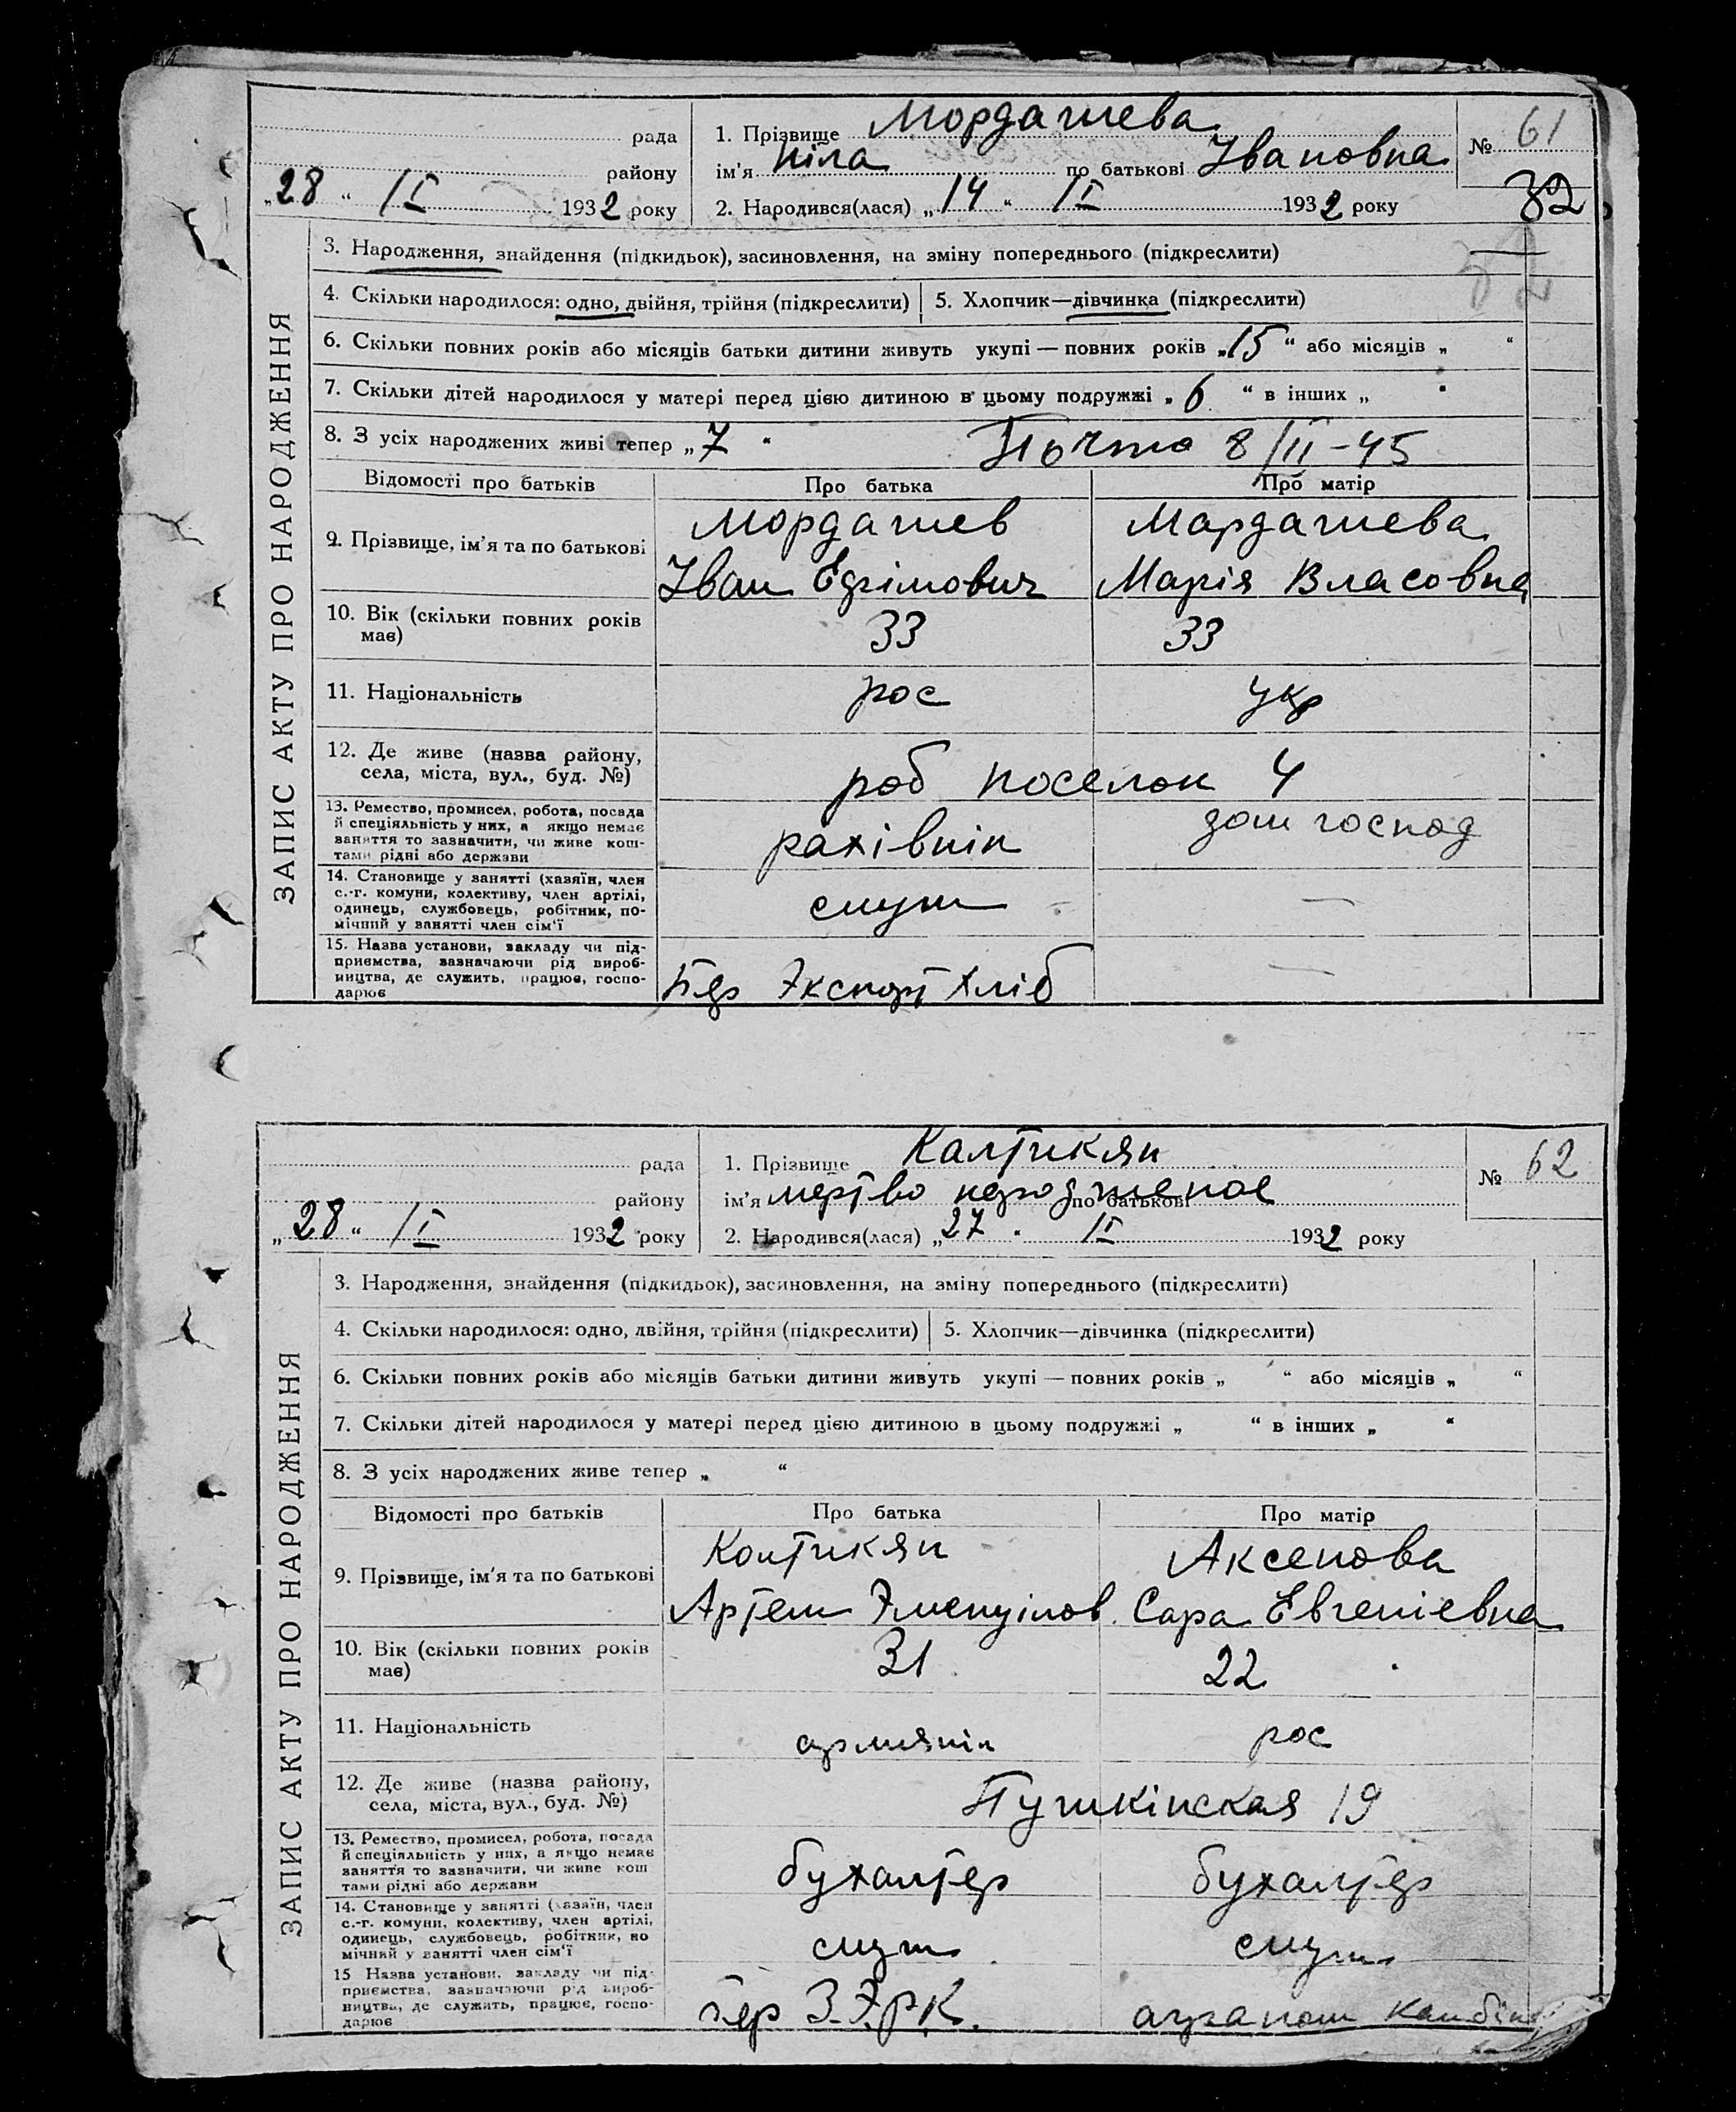 рада
району
„28“ /II 1932 року
1. Прізвище Мордашева
ім'я Ніла по батькові Івановна
2. Народився(лася) „14“ /II 1932 року
№ 61
32
3. Народження, знайдення (підкидьок), засиновлення, на зміну попереднього (підкреслити)
4. Скільки народилося: одно, двійня, трійня (підкреслити) 5. Хлопчик—дівчинка (підкреслити)
6. Скільки повних років або місяців батьки дитини живуть укупі — повних років „15“ або місяців „ “
7. Скільки дітей народилося у матері перед цією дитиною в цьому подружжі „6“ в інших „ “
8. З усіх народжених живі тепер „7“ 8/II-45
Відомості про батьків Про батька Про матір
9. Прізвище, ім'я та по батькові
Мордашев
Іван Ефімович
Мардашева
Марія Власовна
10. Вік (скільки повних років має)
33 33
11. Національність рос укр
12. Де живе (назва району,
села, міста, вул., буд. №)
роб поселок 4
13. Ремество, промисел, робота, посада
й спеціяльність у них, а якщо немає
заняття то зазначити, чи живе кош-
тами рідні або держави
рахівнік
дом господ
14. Становище у занятті (хазяїн, член
с.-г. комуни, колективу, член артілі,
одинець, службовець, робітник, по-
мічний у занятті член сім'ї
служ —
15. Назва установи, закладу чи під-
приємства, зазначаючи рід вироб-
ництва, де служить, працює, госпо-
дарює
Экспорт хліб —
ЗАПИС АКТУ ПРО НАРОДЖЕННЯ
рада
району
„28“ /II 1932 року
1. Прізвище Калтикян
ім'я мертво нарожденое по батькові
2. Народився(лася) „27“ /II 1932 року
№ 62
3. Народження, знайдення (підкидьок), засиновлення, на зміну попереднього (підкреслити)
4. Скільки народилося: одно, двійня, трійня (підкреслити) 5. Хлопчик—дівчинка (підкреслити)
6. Скільки повних років або місяців батьки дитини живуть укупі — повних років „ “ або місяців „ “
7. Скільки дітей народилося у матері перед цією дитиною в цьому подружжі „ “ в інших „ “
8. З усіх народжених живе тепер „ “
Відомості про батьків Про батька Про матір
9. Прізвище, ім'я та по батькові
Колтикян
Артем
Аксенова
Сара Евгеніевна
10. Вік (скільки повних років має)
31 22
11. Національність армянін рос
12. Де живе (назва району,
села, міста, вул., буд. №)
Пушкінская 19
13. Ремество, промисел, робота, посада
й спеціяльність у них, а якщо немає
заняття то зазначити, чи живе кош
тами рідні або держави
бухалтер бухалтер
14. Становище у занятті (хазяїн, член
с.-г. комуни, колективу, член артілі,
одинець, службовець, робітник, по
мічний у занятті член сім'ї
служ служ
15 Назва установи, закладу чи під-
приємства, зазначаючи рід вироб-
ництва, де служить, працює, госпо-
дарює
З.Э.Р.К.
ЗАПИС АКТУ ПРО НАРОДЖЕННЯ